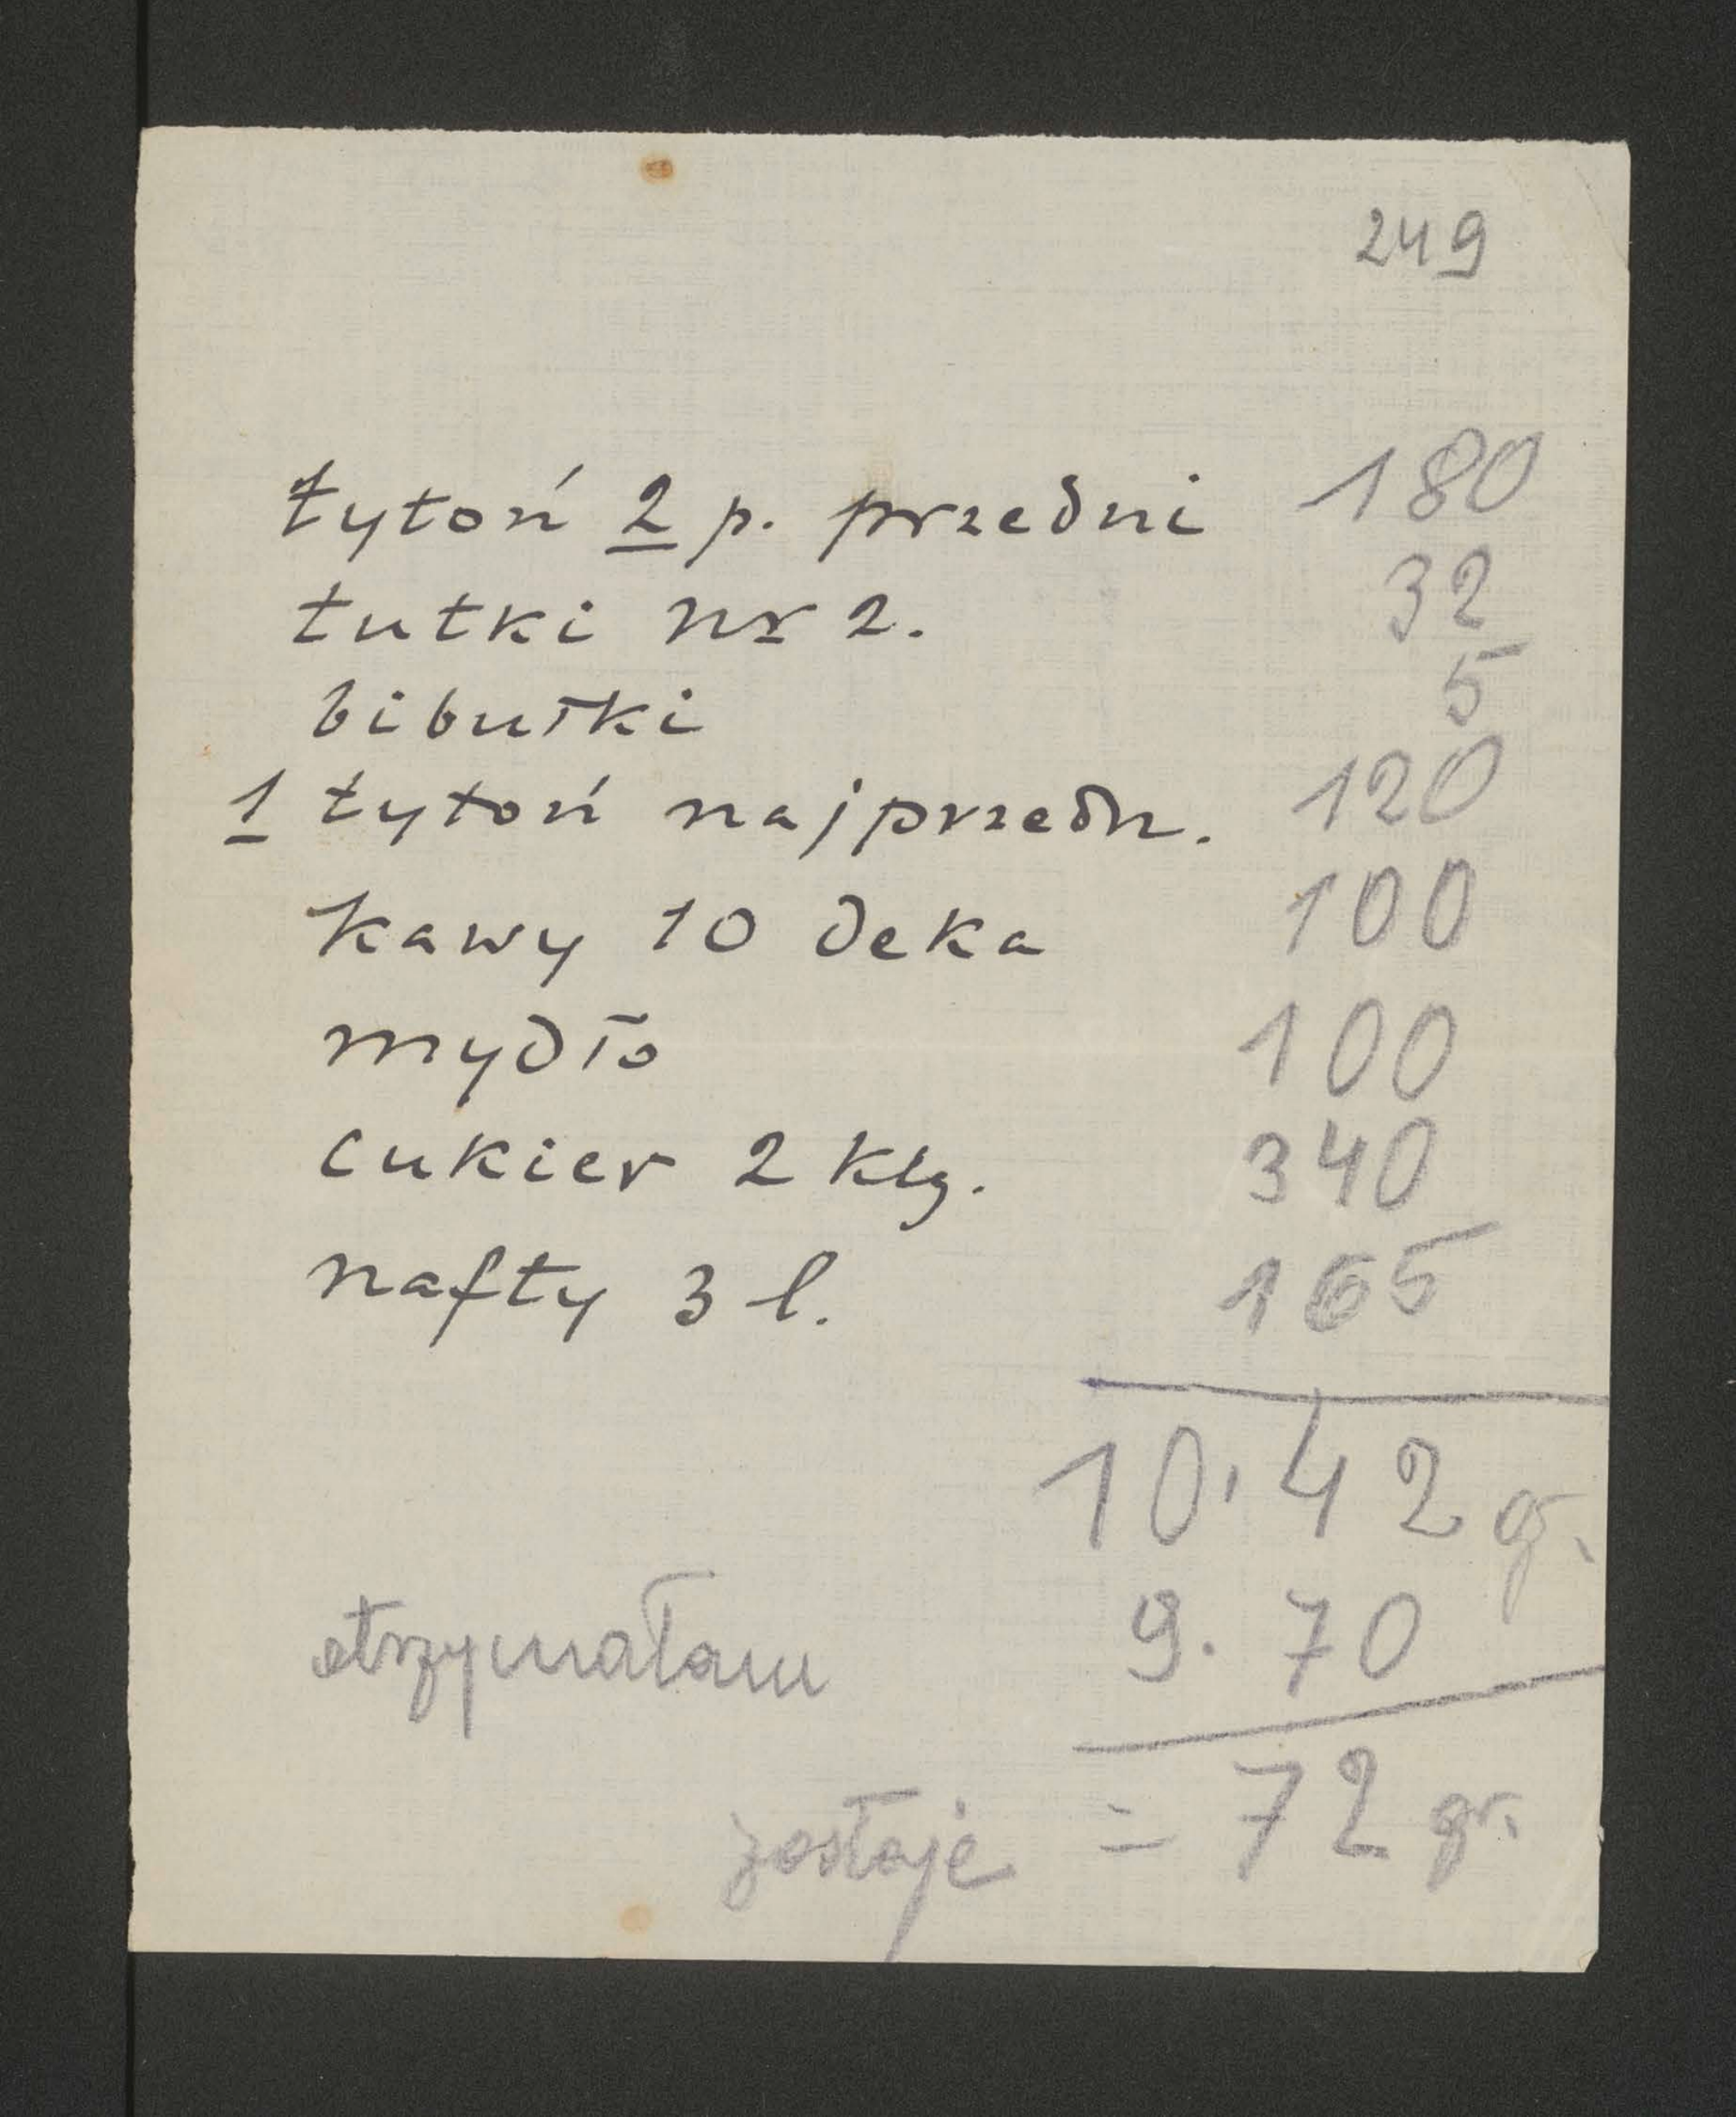 249
tytoń 2 p. przedni 180
tutki nr 2. 32
bibułki 5
1 tytoń najprzedn. 120
kawy 10 deka 100
mydło 100
cukier 2 klg. 340
nafty 3 l. 165
10,42 gr.
otrzymałam 9.70
zostaje = 72 gr.